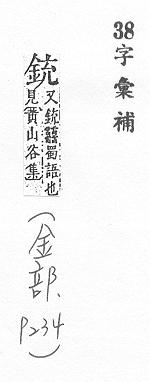 38字彙補
銃
又銃䥫蜀語也
見黃山谷集
(金部、
P234)